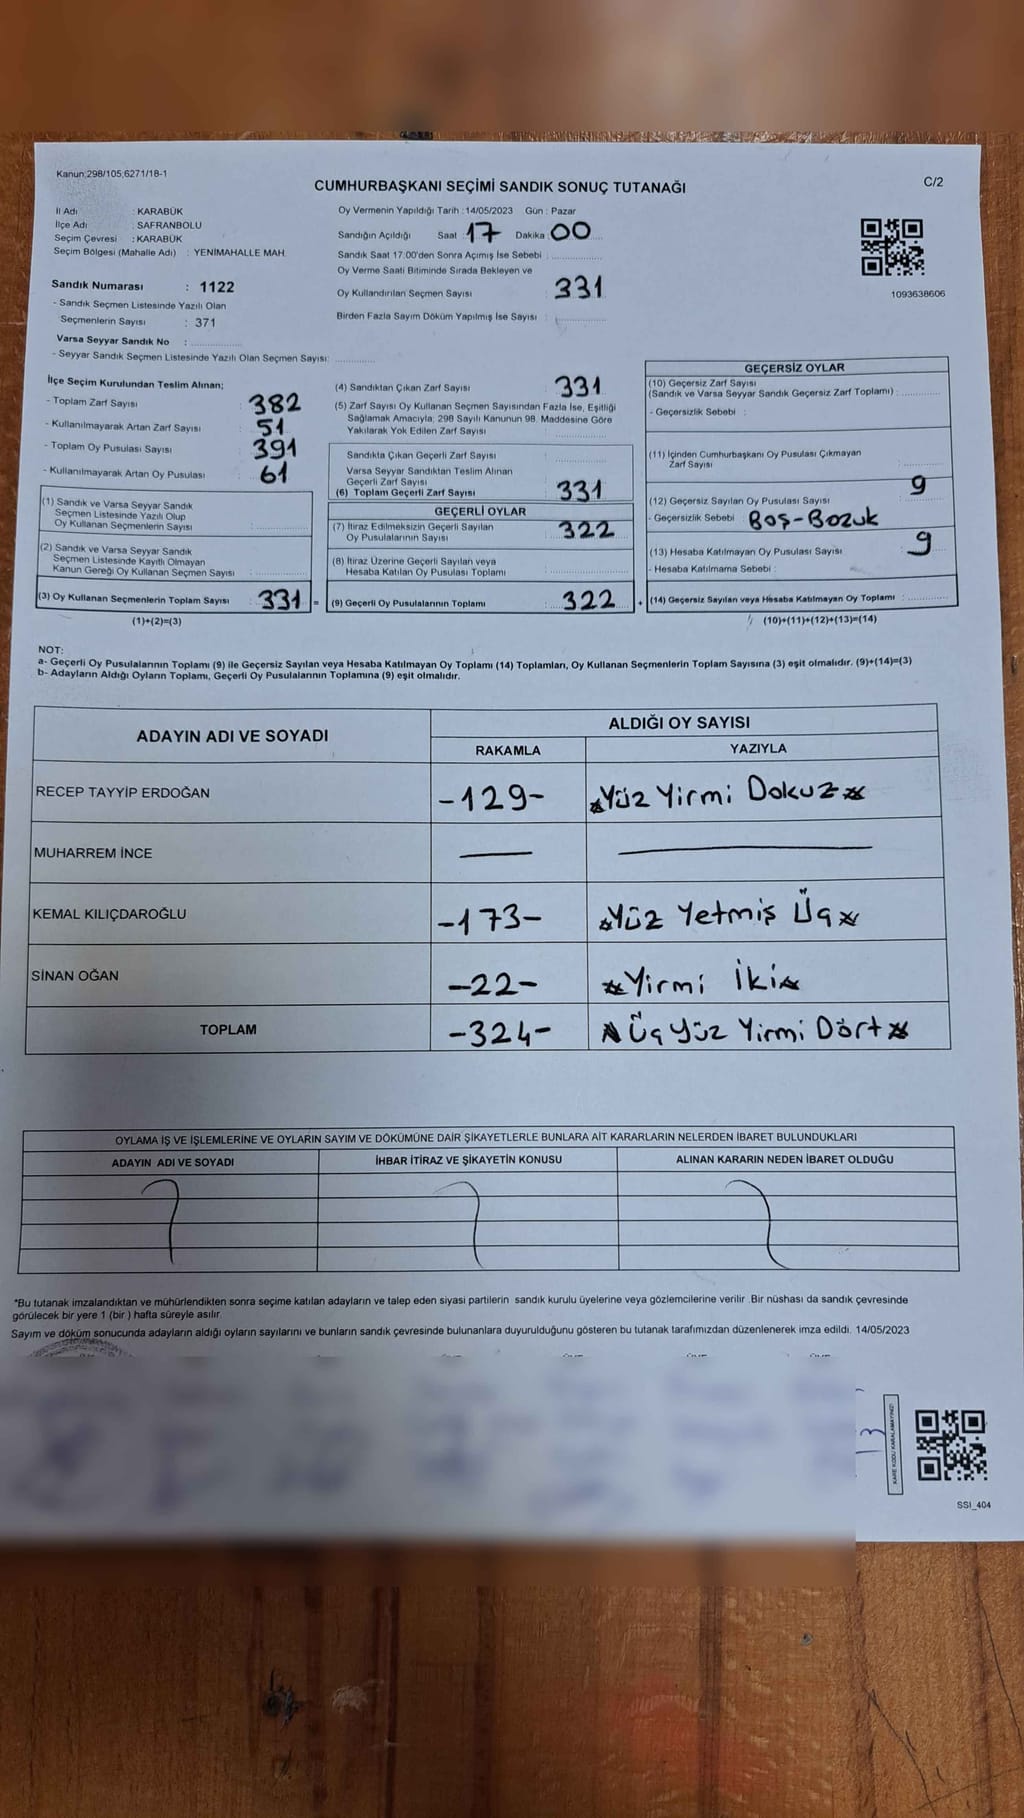 Kanun:298/105;6271/18-1
C/2
CUMHURBAŞKANI SEÇİMİ SANDIK SONUÇ TUTANAĞI
İl Adı : KARABÜK
İlçe Adı : SAFRANBOLU
Seçim Çevresi : KARABÜK
Seçim Bölgesi (Mahalle Adı) : YENİMAHALLE MAH.
Sandık Numarası : 1122
- Sandık Seçmen Listesinde Yazılı Olan
Seçmenlerin Sayısı : 371
Varsa Seyyar Sandık No :
- Seyyar Sandık Seçmen Listesinde Yazılı Olan Seçmen Sayısı:
Oy Vermenin Yapıldığı Tarih :14/05/2023 Gün : Pazar
Sandığın Açıldığı Saat 17 Dakika 00
Sandık Saat 17:00'den Sonra Açımış İse Sebebi :
Oy Verme Saati Bitiminde Sırada Bekleyen ve
Oy Kullandırılan Seçmen Sayısı : 331
Birden Fazla Sayım Döküm Yapılmış İse Sayısı :
1093638606
İlçe Seçim Kurulundan Teslim Alınan;
- Toplam Zarf Sayısı : 382
- Kullanılmayarak Artan Zarf Sayısı : 51
- Toplam Oy Pusulası Sayısı : 391
- Kullanılmayarak Artan Oy Pusulası : 61
(1) Sandık ve Varsa Seyyar Sandık
Seçmen Listesinde Yazılı Olup
Oy Kullanan Seçmenlerin Sayısı :
(2) Sandık ve Varsa Seyyar Sandık
Seçmen Listesinde Kayıtlı Olmayan
Kanun Gereği Oy Kullanan Seçmen Sayısı :
(3) Oy Kullanan Seçmenlerin Toplam Sayısı : 331 =
(1)+(2)=(3)
(4) Sandıktan Çıkan Zarf Sayısı : 331
(5) Zarf Sayısı Oy Kullanan Seçmen Sayısından Fazla İse, Eşitliği
Sağlamak Amacıyla; 298 Sayılı Kanunun 98. Maddesine Göre
Yakılarak Yok Edilen Zarf Sayısı :
Sandıkta Çıkan Geçerli Zarf Sayısı :
Varsa Seyyar Sandıktan Teslim Alınan
Geçerli Zarf Sayısı :
(6) Toplam Geçerli Zarf Sayısı : 331
GEÇERLİ OYLAR
(7) İtiraz Edilmeksizin Geçerli Sayılan
Oy Pusulalarının Sayısı : 322
(8) İtiraz Üzerine Geçerli Sayılan veya
Hesaba Katılan Oy Pusulası Toplamı :
(9) Geçerli Oy Pusulalarının Toplamı : 322 +
GEÇERSİZ OYLAR
(10) Geçersiz Zarf Sayısı
(Sandık ve Varsa Seyyar Sandık Geçersiz Zarf Toplamı) :
- Geçersizlik Sebebi :
(11) İçinden Cumhurbaşkanı Oy Pusulası Çıkmayan
Zarf Sayısı :
(12) Geçersiz Sayılan Oy Pusulası Sayısı : 9
- Geçersizlik Sebebi : Boş-Bozuk
(13) Hesaba Katılmayan Oy Pusulası Sayısı : 9
- Hesaba Katılmama Sebebi :
(14) Geçersiz Sayılan veya Hesaba Katılmayan Oy Toplamı :
(10)+(11)+(12)+(13)=(14)
NOT:
a- Geçerli Oy Pusulalarının Toplamı (9) ile Geçersiz Sayılan veya Hesaba Katılmayan Oy Toplamı (14) Toplamları, Oy Kullanan Seçmenlerin Toplam Sayısına (3) eşit olmalıdır. (9)+(14)=(3)
b- Adayların Aldığı Oyların Toplamı, Geçerli Oy Pusulalarının Toplamına (9) eşit olmalıdır.
ADAYIN ADI VE SOYADI ALDIĞI OY SAYISI
RAKAMLA YAZIYLA
RECEP TAYYİP ERDOĞAN -129- Yüz Yirmi Dokuz
MUHARREM İNCE
KEMAL KILIÇDAROĞLU -173- Yüz Yetmiş Üç
SİNAN OĞAN -22- Yirmi İki
TOPLAM -324- Üç Yüz Yirmi Dört
OYLAMA İŞ VE İŞLEMLERİNE VE OYLARIN SAYIM VE DÖKÜMÜNE DAİR ŞİKAYETLERLE BUNLARA AİT KARARLARIN NELERDEN İBARET BULUNDUKLARI
ADAYIN ADI VE SOYADI İHBAR İTİRAZ VE ŞİKAYETİN KONUSU ALINAN KARARIN NEDEN İBARET OLDUĞU
*Bu tutanak imzalandıktan ve mühürlendikten sonra seçime katılan adayların ve talep eden siyasi partilerin sandık kurulu üyelerine veya gözlemcilerine verilir. Bir nüshası da sandık çevresinde
görülecek bir yere 1 (bir ) hafta süreyle asılır.
Sayım ve döküm sonucunda adayların aldığı oyların sayılarını ve bunların sandık çevresinde bulunanlara duyurulduğunu gösteren bu tutanak tarafımızdan düzenlenerek imza edildi. 14/05/2023
KARE KODU KARALAMAYINIZ!
SSI_404